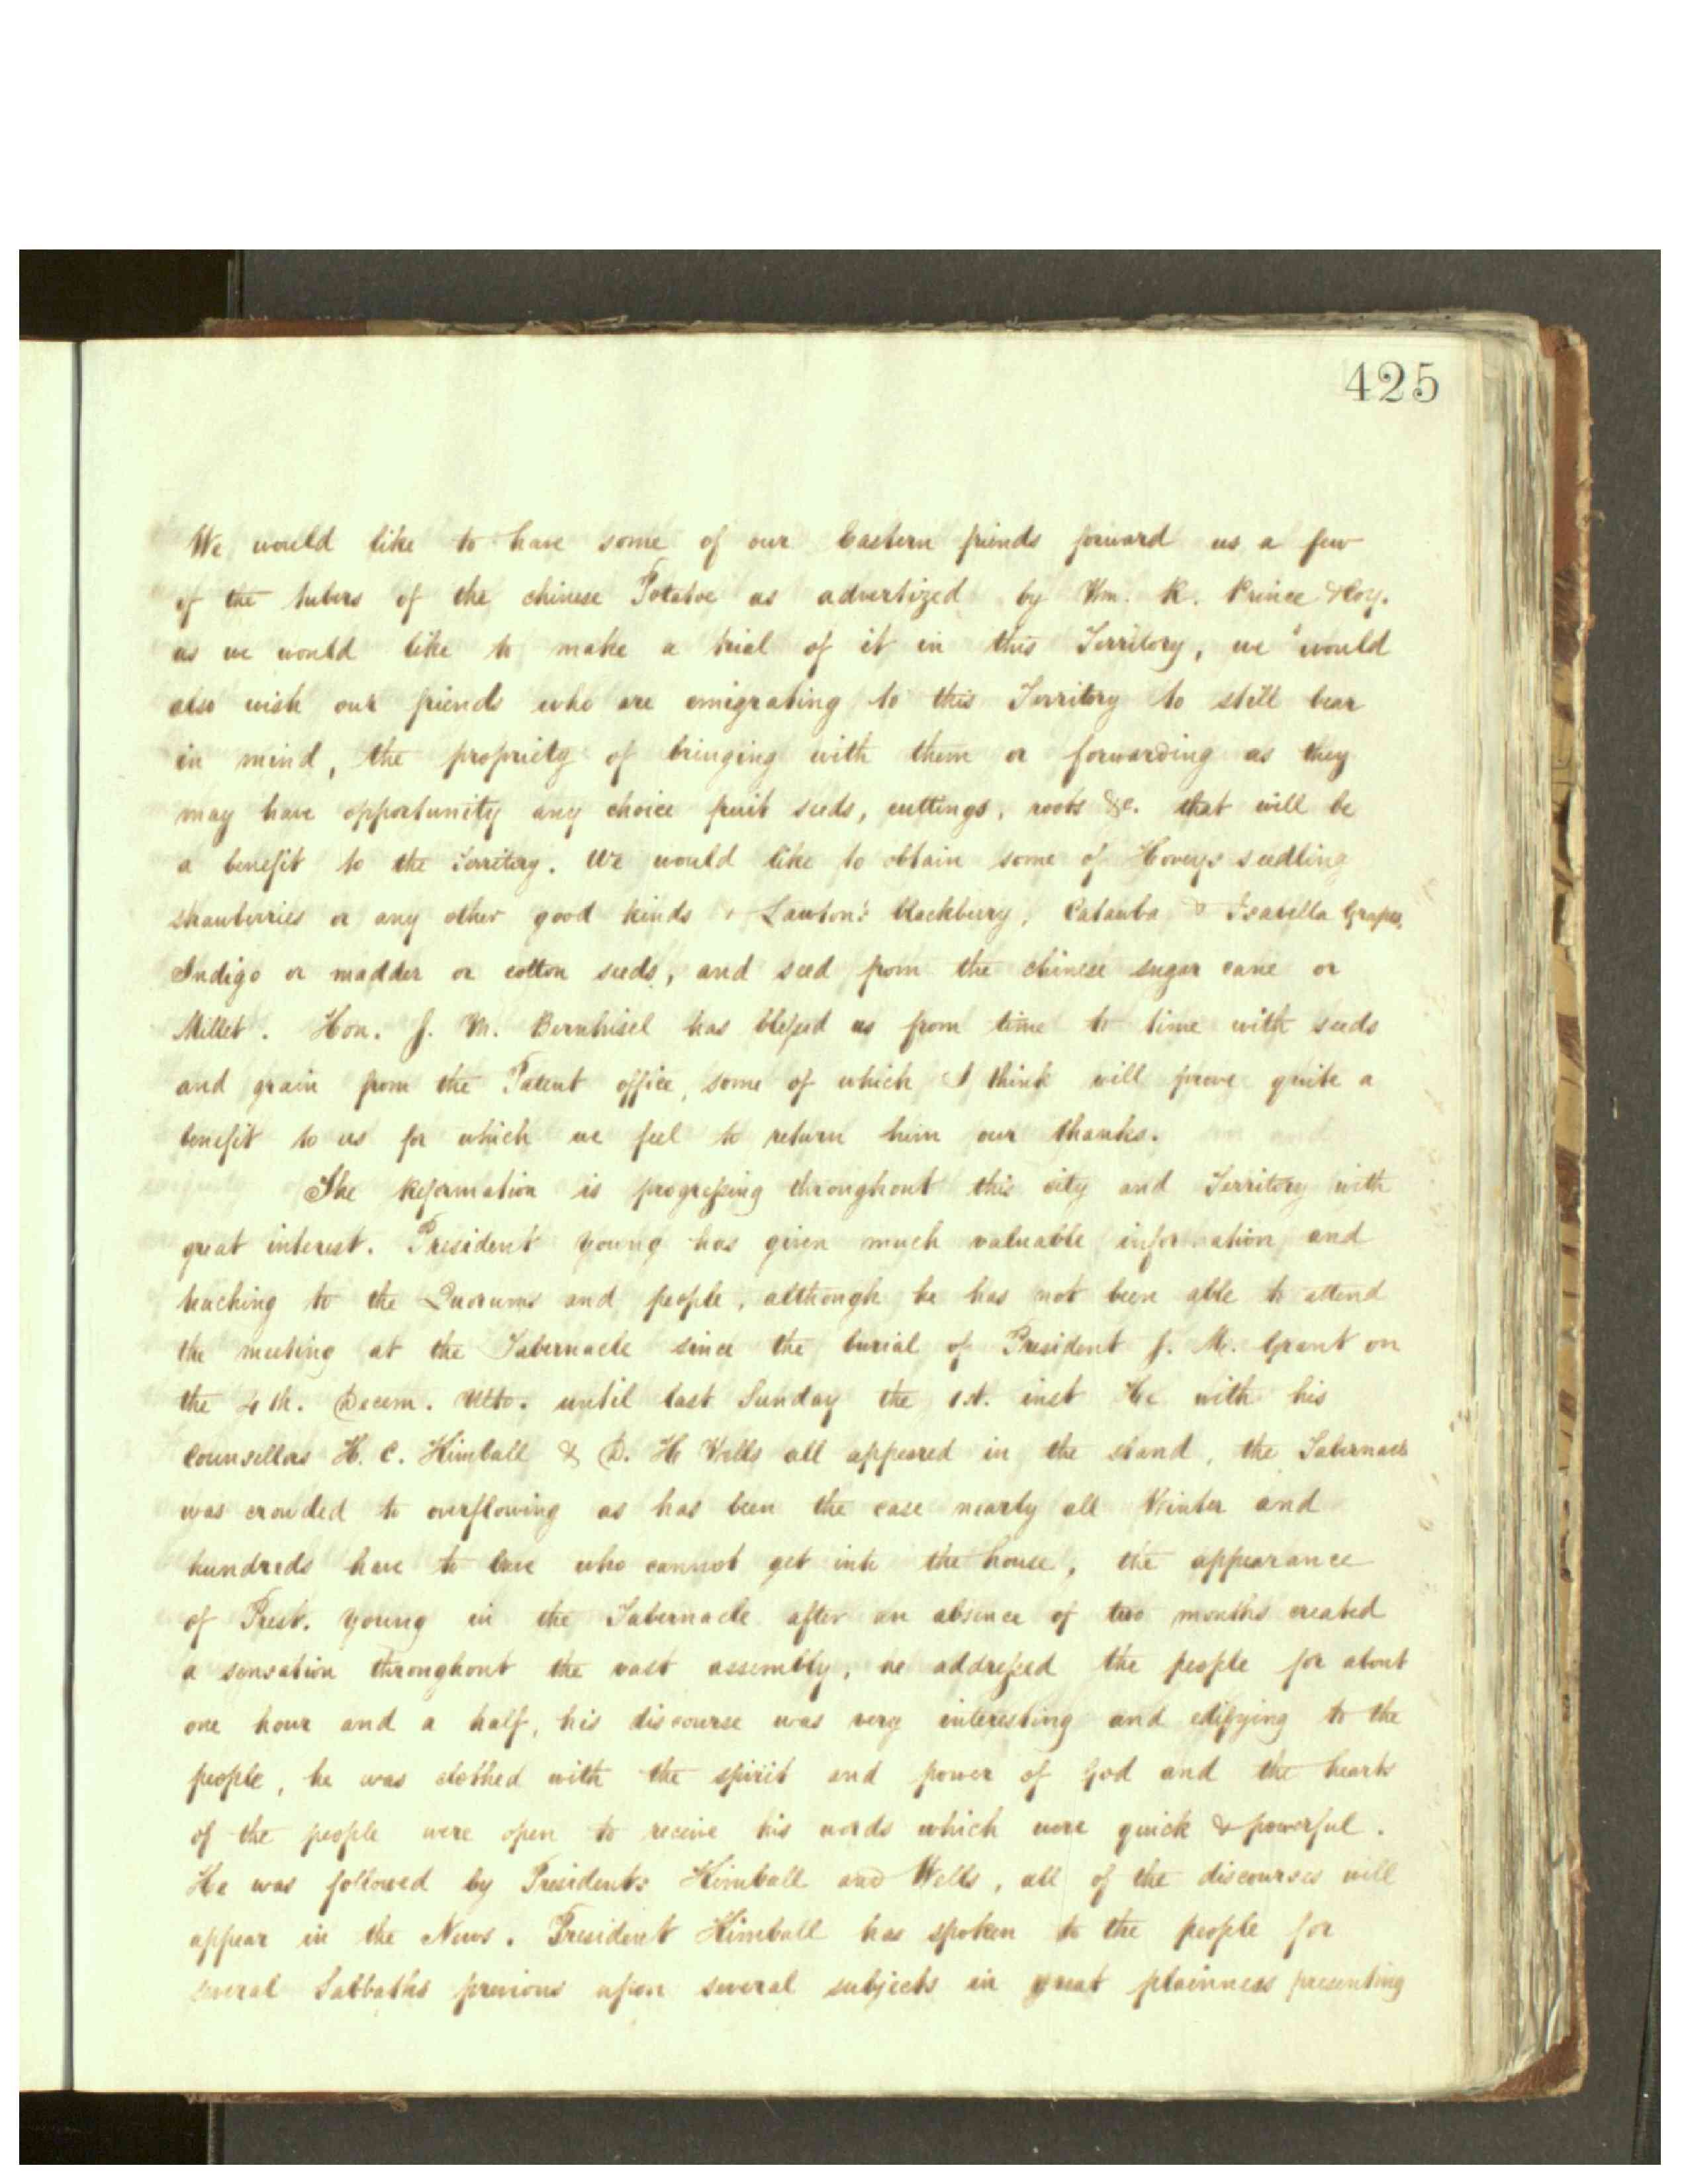 425
We would like to have some of our Eastern friends forward us a few
of the tubers of the chinese Potatoe as advertized by Wm. R. Prince & Coy.
as we would like to make a trial of it in this Territory, we would
also wish our friends who are emigrating to this Territory to still bear
in mind, the propriety of bringing with them or forwarding as they
may have opportunity any choice fruit seeds, cuttings, roots &c. that will be
a benefit to the Territory. We would like to obtain some of Hoveys seedling
strawberries or any other good kinds & Lawton's blackberry, Catauba & Isabella Grapes,
Indigo or madder or cotton seeds, and seed from the chinese sugar cane or
Millet. Hon. J. M. Bernhisel has blessed us from time to time with seeds
and grain from the Patent office, some of which I think will prove quite a
benefit to us for which we feel to return him our thanks.
The Reformation is progressing throughout this city and Territory with
great interest. President Young has given much valuable information and
teaching to the Quorums and people, although he has not been able to attend
the meeting at the Tabernacle since the burial of President J. M. Grant on
the 4th. Decem. Ulto. until last Sunday the 1st. inst He with his
Counsellors H. C. Kimball & D. H Wells all appeared in the stand, the Tabernacle
was crowded to overflowing as has been the case nearly all Winter and
hundreds have to leave who cannot get into the house, the appearance
of Prest. Young in the Tabernacle after an absence of two months created
a sensation throughout the vast assembly, he addressed the people for about
one hour and a half, his discourse was very interesting and edifying to the
people, he was clothed with the spirit and power of God and the hearts
of the people were open to receive his words which were quick & powerful.
He was followed by Presidents Kimball and Wells, all of the discourses will
appear in the News. President Kimball has spoken to the people for
several Sabbaths previous upon several subjects in great plainness presenting